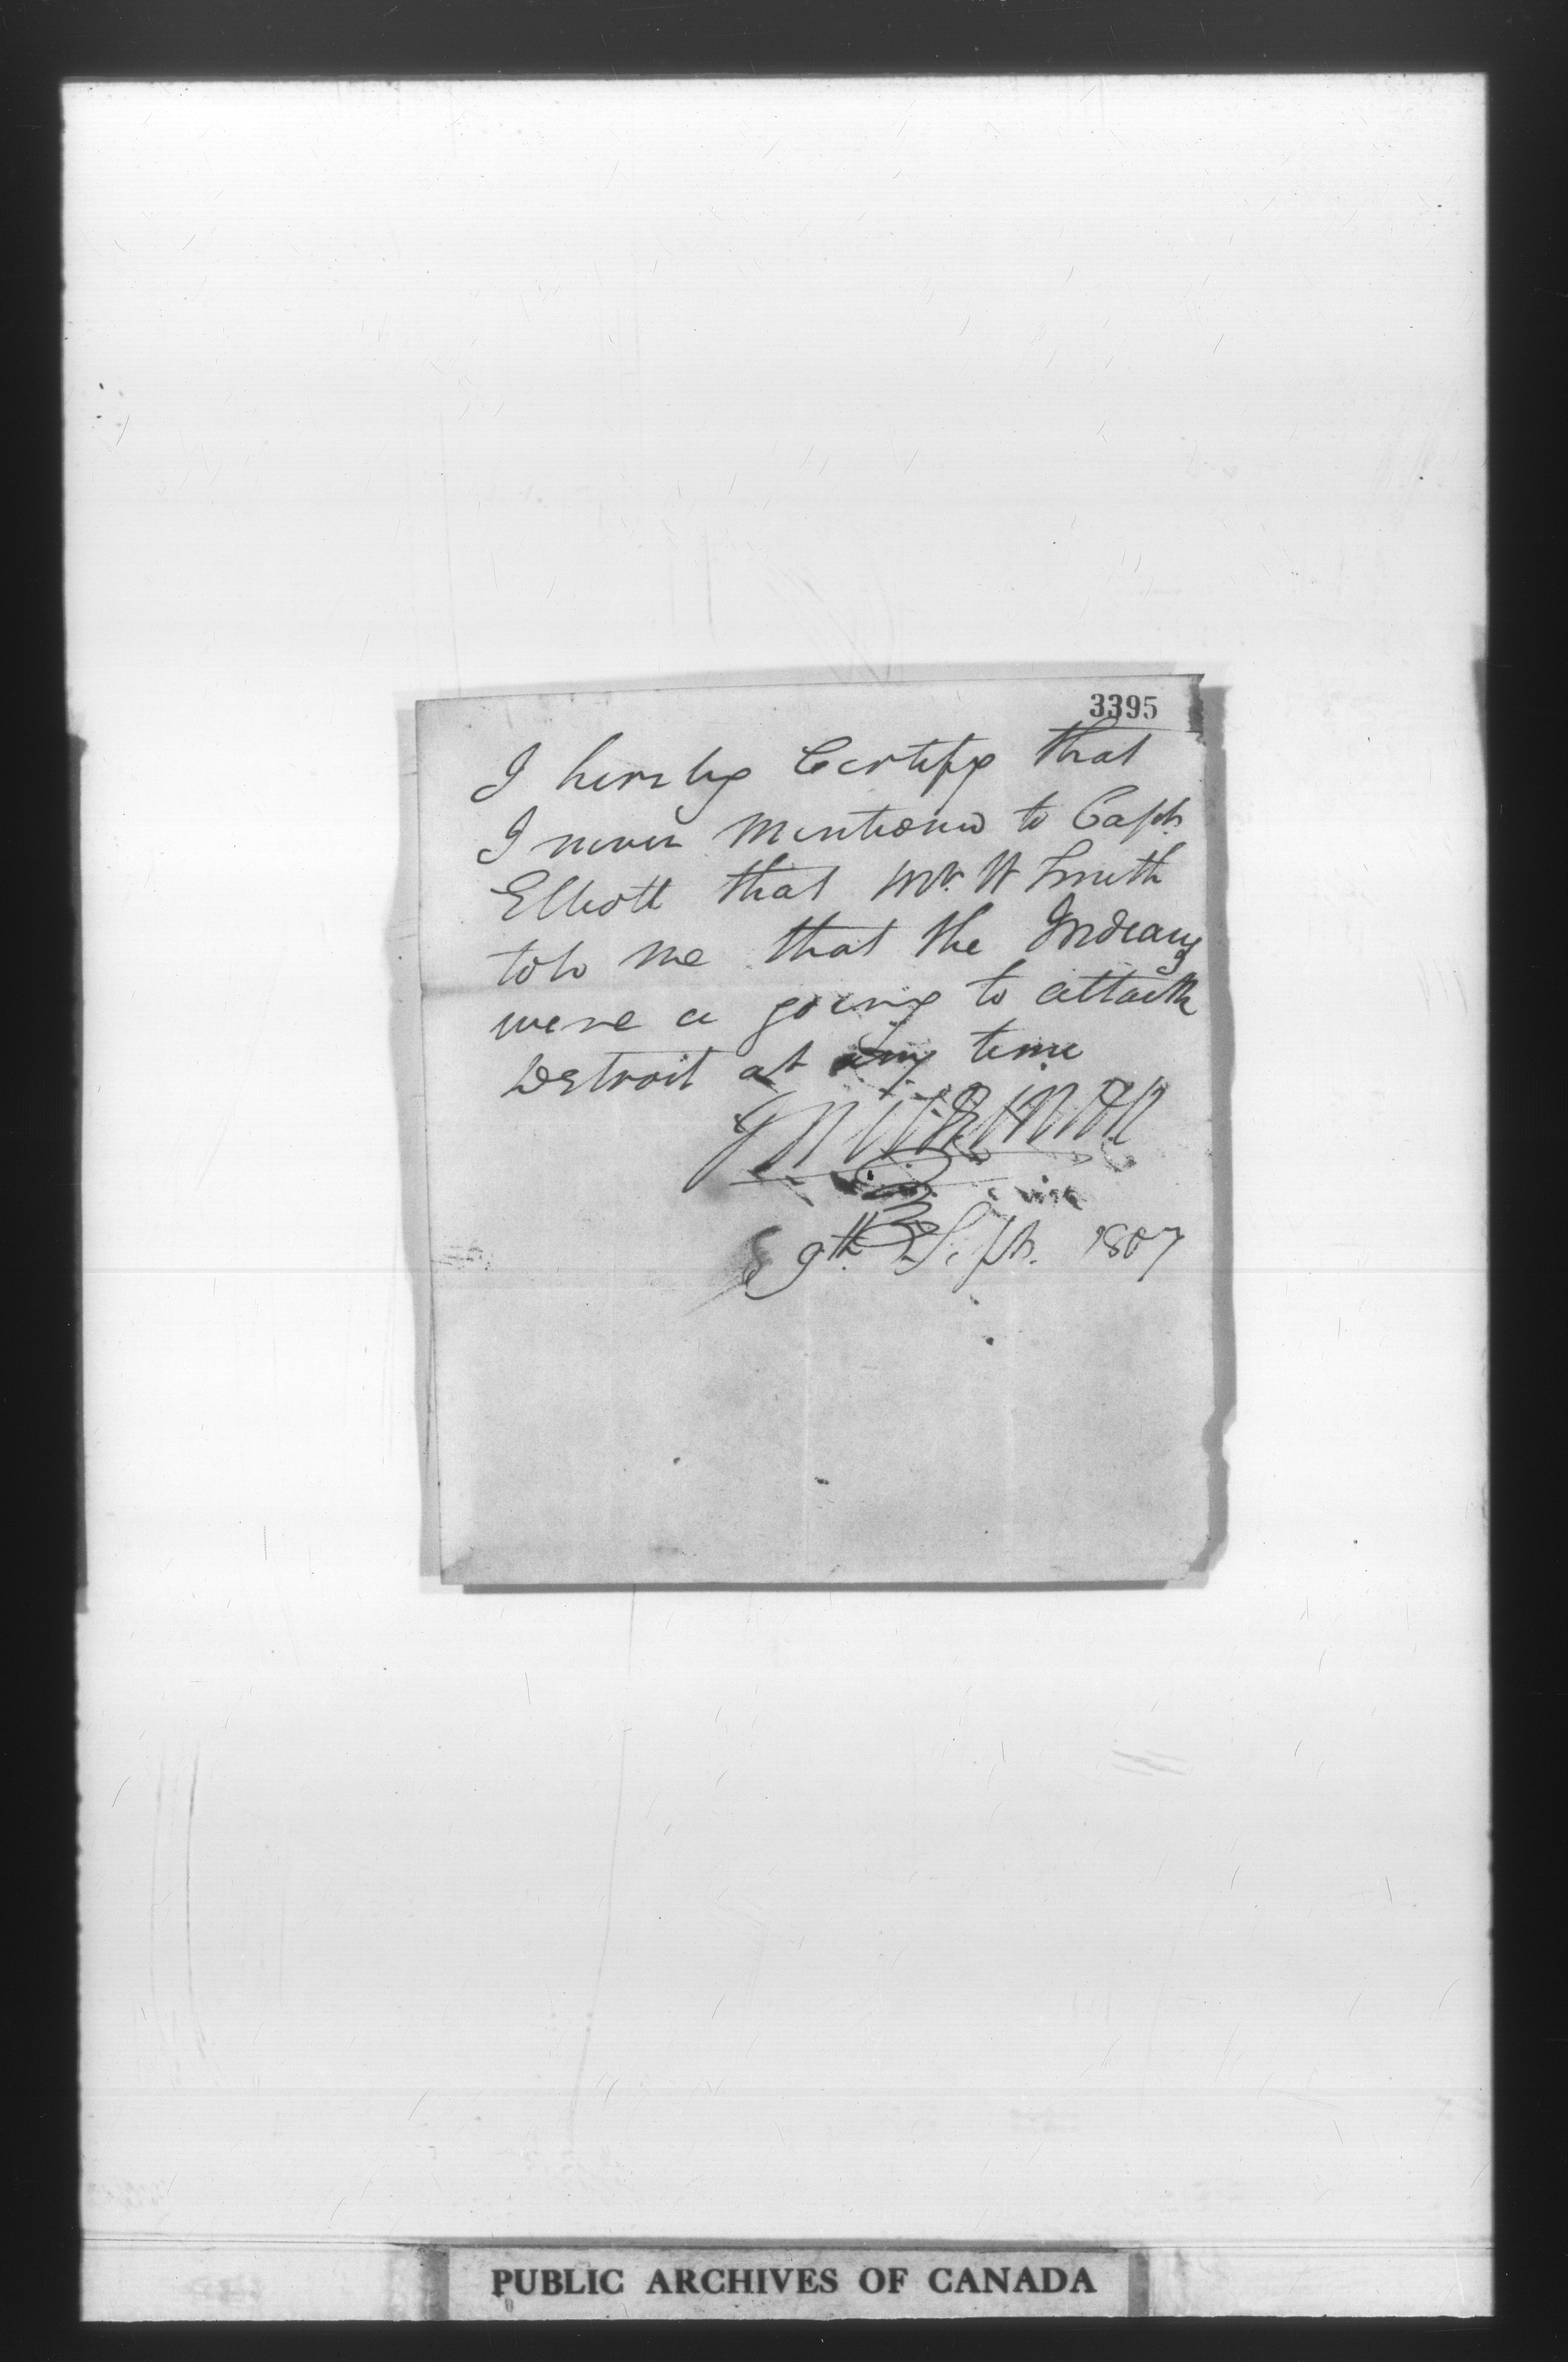 3395
I hereby Certify that
I never Mentioned to Capt.
Elliott that Mr. W Smith
told me that the Indians
were a going to attack
Detroit at any time
9th Sept. 1807
PUBLIC ARCHIVES OF CANADA